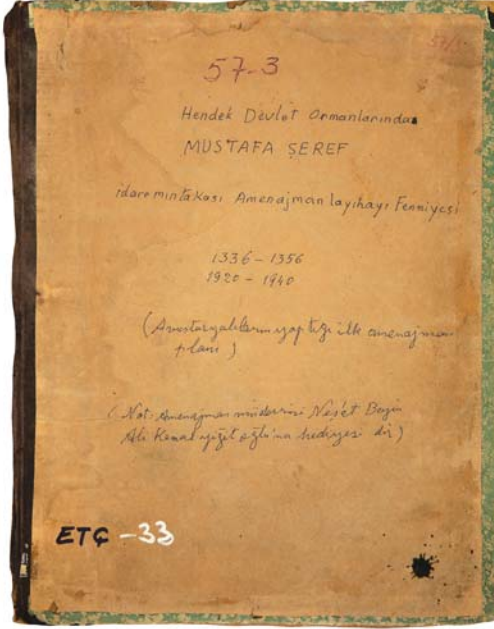 57/3
57-3
Hendek Devlet Ormanlarında
MUSTAFA ŞEREF
idare mıntakası Amenajman layıhayı Fenniyesi
1336 - 1356
1920 - 1940
(Avusturyalıların yaptığı ilk amenajman
planı)
(Not: Amenajman müderrisi Neş'et Beyin
Ali Kemal Yiğitoğlu'na hediyesi dir)
ETÇ -33